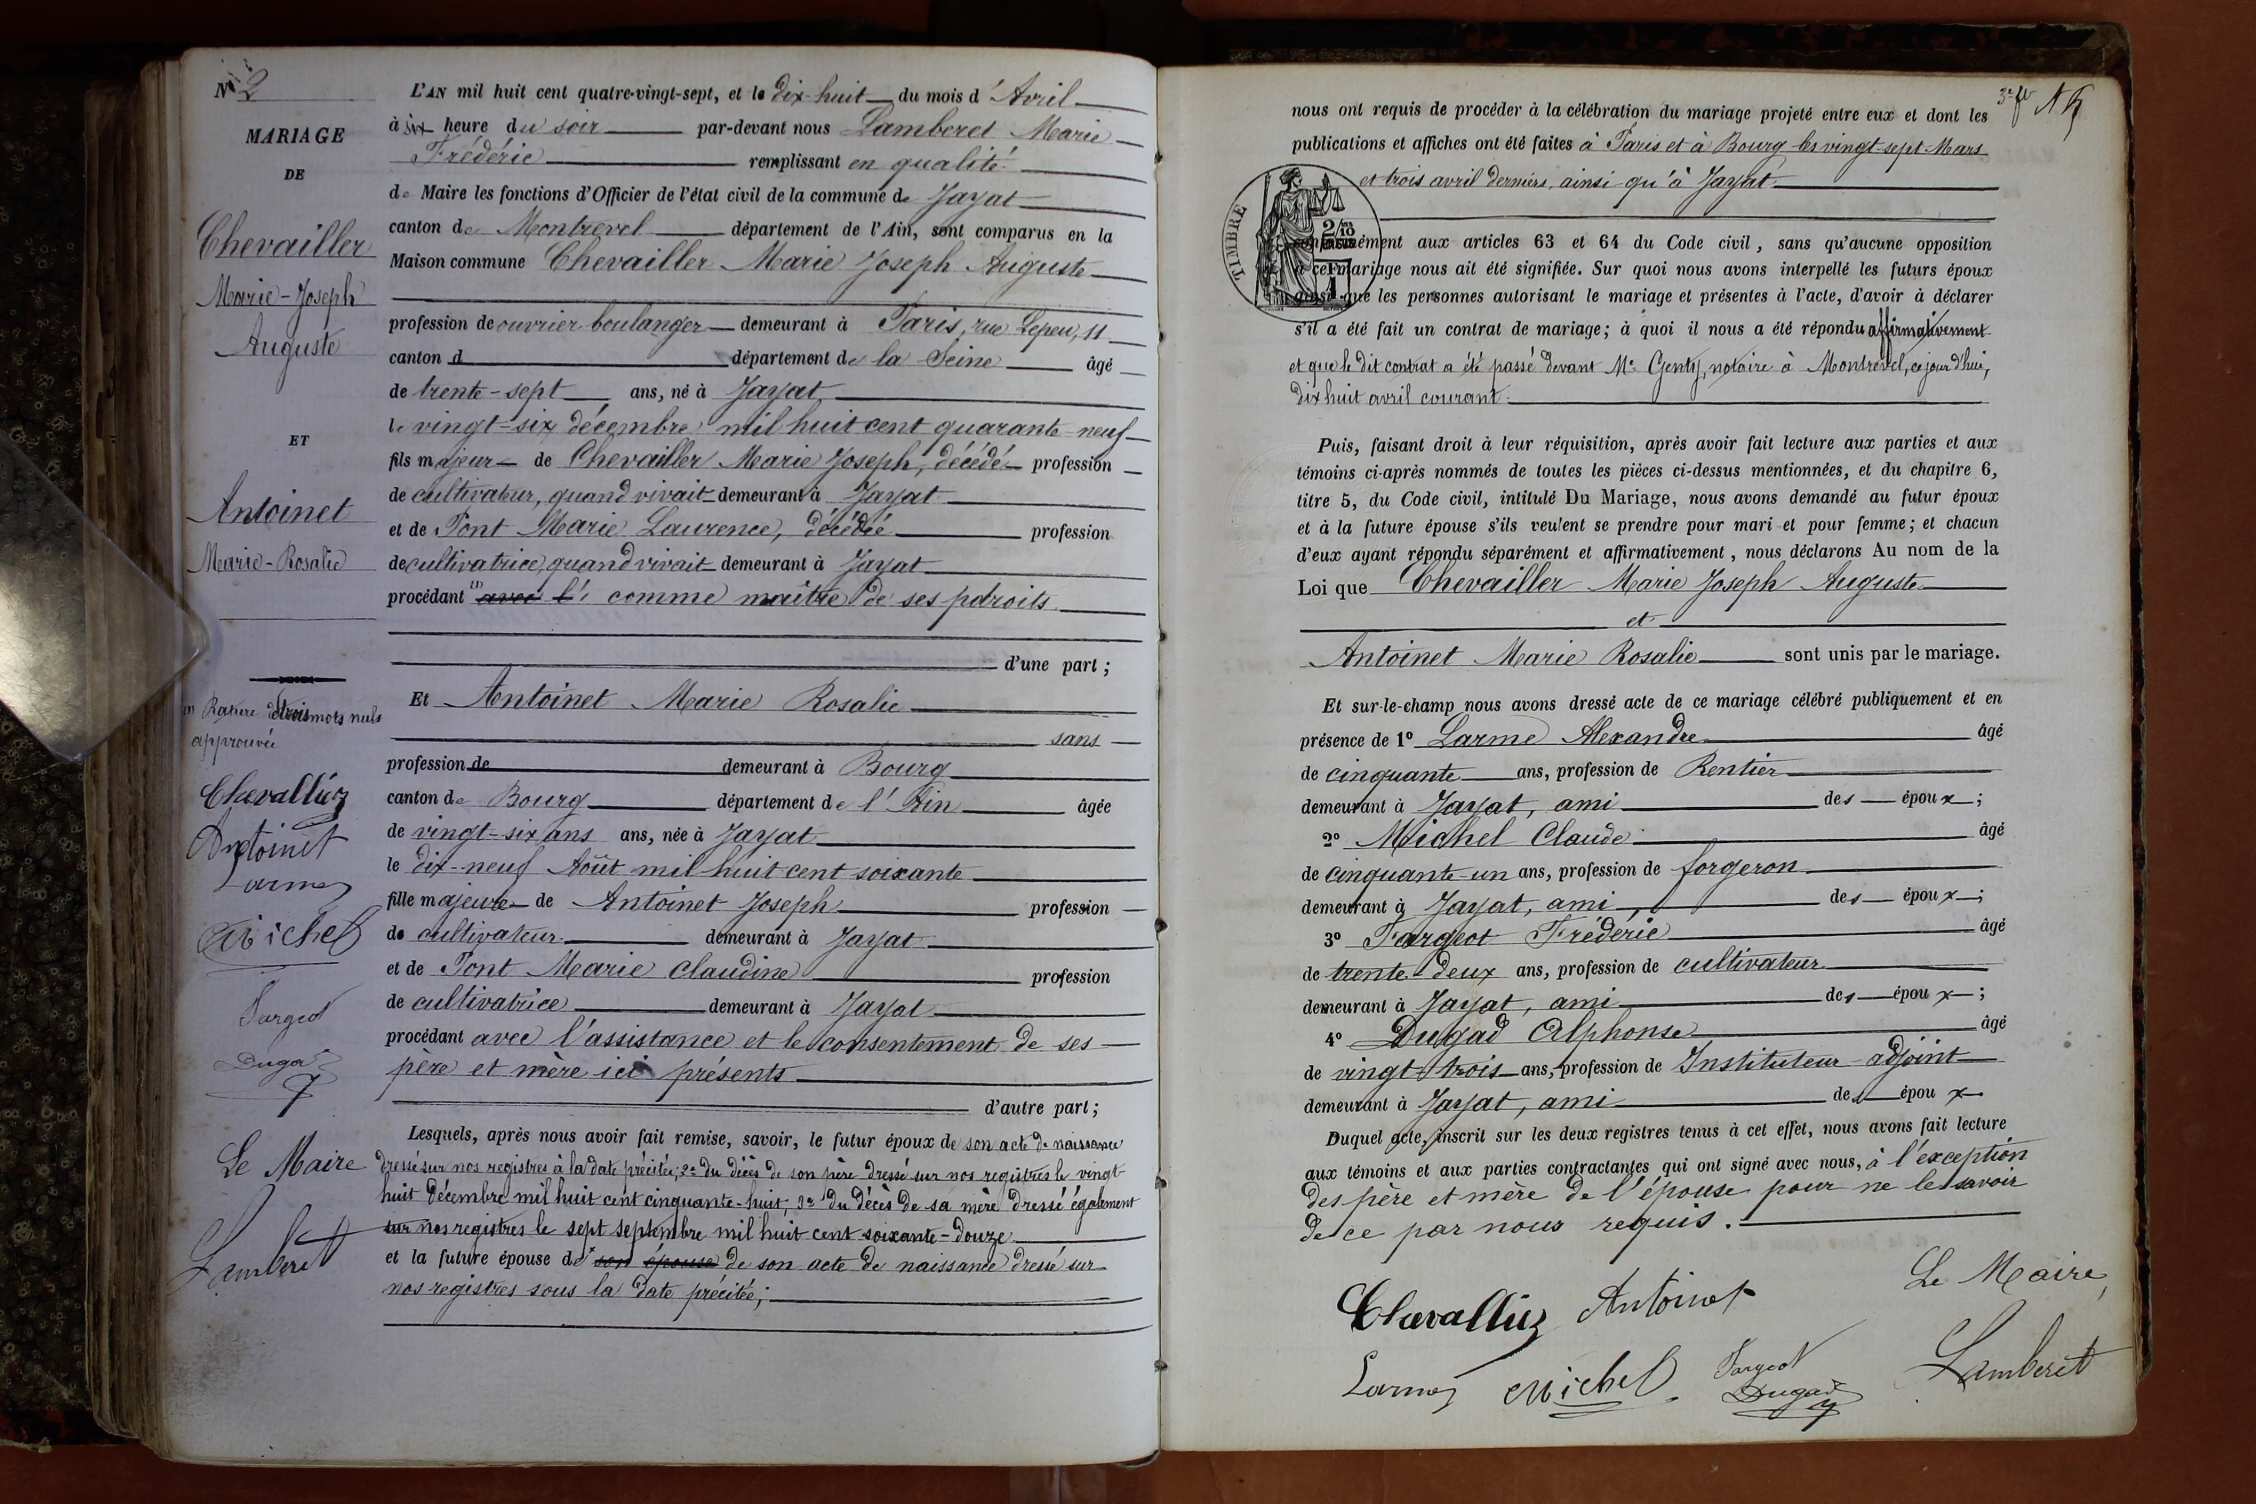 N° 2
MARIAGE
DE
Chevailler
Marie-Joseph
Auguste
ET
Antoinet
Marie-Rosalie
Rature de trois mots nuls
approuvée
Chevallier
Antoinet
Larme
Michel
Fargeot
Dugad
Le Maire
Lamberet
L'AN mil huit cent quatre-vingt-sept, et le dix-huit du mois d'Avril
à six heure du soir par-devant nous Lamberet Marie
Frédéric remplissant en qualité
de Maire les fonctions d'Officier de l'état civil de la commune de Jayat
canton de Montrevel département de l'Ain, sont comparus en la
Maison commune Chevailler Marie Joseph Auguste
profession de ouvrier boulanger demeurant à Paris, rue Lepeu, 11
canton d département de la Seine âgé
de trente-sept ans, né à Jayat,
le vingt-six décembre mil huit cent quarante-neuf
fils majeur de Chevailler Marie Joseph, décédé profession
de cultivateur, quand vivait demeurant à Jayat
et de Pont Marie Laurence, décédée profession
de cultivatrice, quand vivait demeurant à Jayat
procédant avec l' comme maître de ses pdroits
d'une part;
Et Antoinet Marie Rosalie
sans
profession de demeurant à Bourg
canton de Bourg département de l'Ain âgée
de vingt-six ans ans, née à Jayat
le dix-neuf Août mil huit cent soixante
fille majeure de Antoinet Joseph profession
de cultivateur demeurant à Jayat
et de Pont Marie Claudine profession
de cultivatrice demeurant à Jayat
procédant avec l'assistance et le consentement de ses
père et mère ici présents
d'autre part;
Lesquels, après nous avoir fait remise, savoir, le futur époux de son acte de naissance
dressé sur nos registres à la date précitée; 2° du décès de son père dressé sur nos registres le vingt
huit décembre mil huit cent cinquante-huit, 3° du décès de sa mère dressé également
sur nos registres le sept septembre mil huit cent soixante-douze
et la future épouse de son épouse de son acte de naissance dressé sur
nos registres sous la date précitée;
3e fo
nous ont requis de procéder à la célébration du mariage projeté entre eux et dont les
publications et affiches ont été faites à Paris et à Bourg les vingt-sept Mars
et trois avril derniers, ainsi qu'à Jayat
TIMBRE
2/10
1
conformément aux articles 63 et 64 du Code civil, sans qu'aucune opposition
à ce mariage nous ait été signifiée. Sur quoi nous avons interpellé les futurs époux
ainsi que les personnes autorisant le mariage et présentes à l'acte, d'avoir à déclarer
s'il a été fait un contrat de mariage; à quoi il nous a été répondu affirmativement
et que le dit contrat a été passé devant Me Genty, notaire à Montrevel, ce jour d'hui,
dix huit avril courant.
Puis, faisant droit à leur réquisition, après avoir fait lecture aux parties et aux
témoins ci-après nommés de toutes les pièces ci-dessus mentionnées, et du chapitre 6,
titre 5, du Code civil, intitulé Du Mariage, nous avons demandé au futur époux
et à la future épouse s'ils veulent se prendre pour mari et pour femme; et chacun
d'eux ayant répondu séparément et affirmativement, nous déclarons Au nom de la
Loi que Chevailler Marie Joseph Auguste
et
Antoinet Marie Rosalie sont unis par le mariage.
Et sur-le-champ nous avons dressé acte de ce mariage célébré publiquement et en
présence de 1° Larme Alexandre âgé
de cinquante ans, profession de Rentier
demeurant à Jayat, ami des époux;
2° Michel Claude âgé
de cinquante-un ans, profession de forgeron
demeurant à Jayat, ami des époux;
3° Fargeot Frédéric âgé
de trente-deux ans, profession de cultivateur
demeurant à Jayat, ami des époux;
4° Dugad Alphonse âgé
de vingt-trois ans, profession de Instituteur-adjoint
demeurant à Jayat, ami des époux
Duquel acte, inscrit sur les deux registres tenus à cet effet, nous avons fait lecture
aux témoins et aux parties contractantes qui ont signé avec nous, à l'exception
des père et mère de l'épouse pour ne le savoir
de ce par nous requis.
Le Maire,
Chevallier Antoinet
Larme Michel Fargeot
Dugad
Lamberet